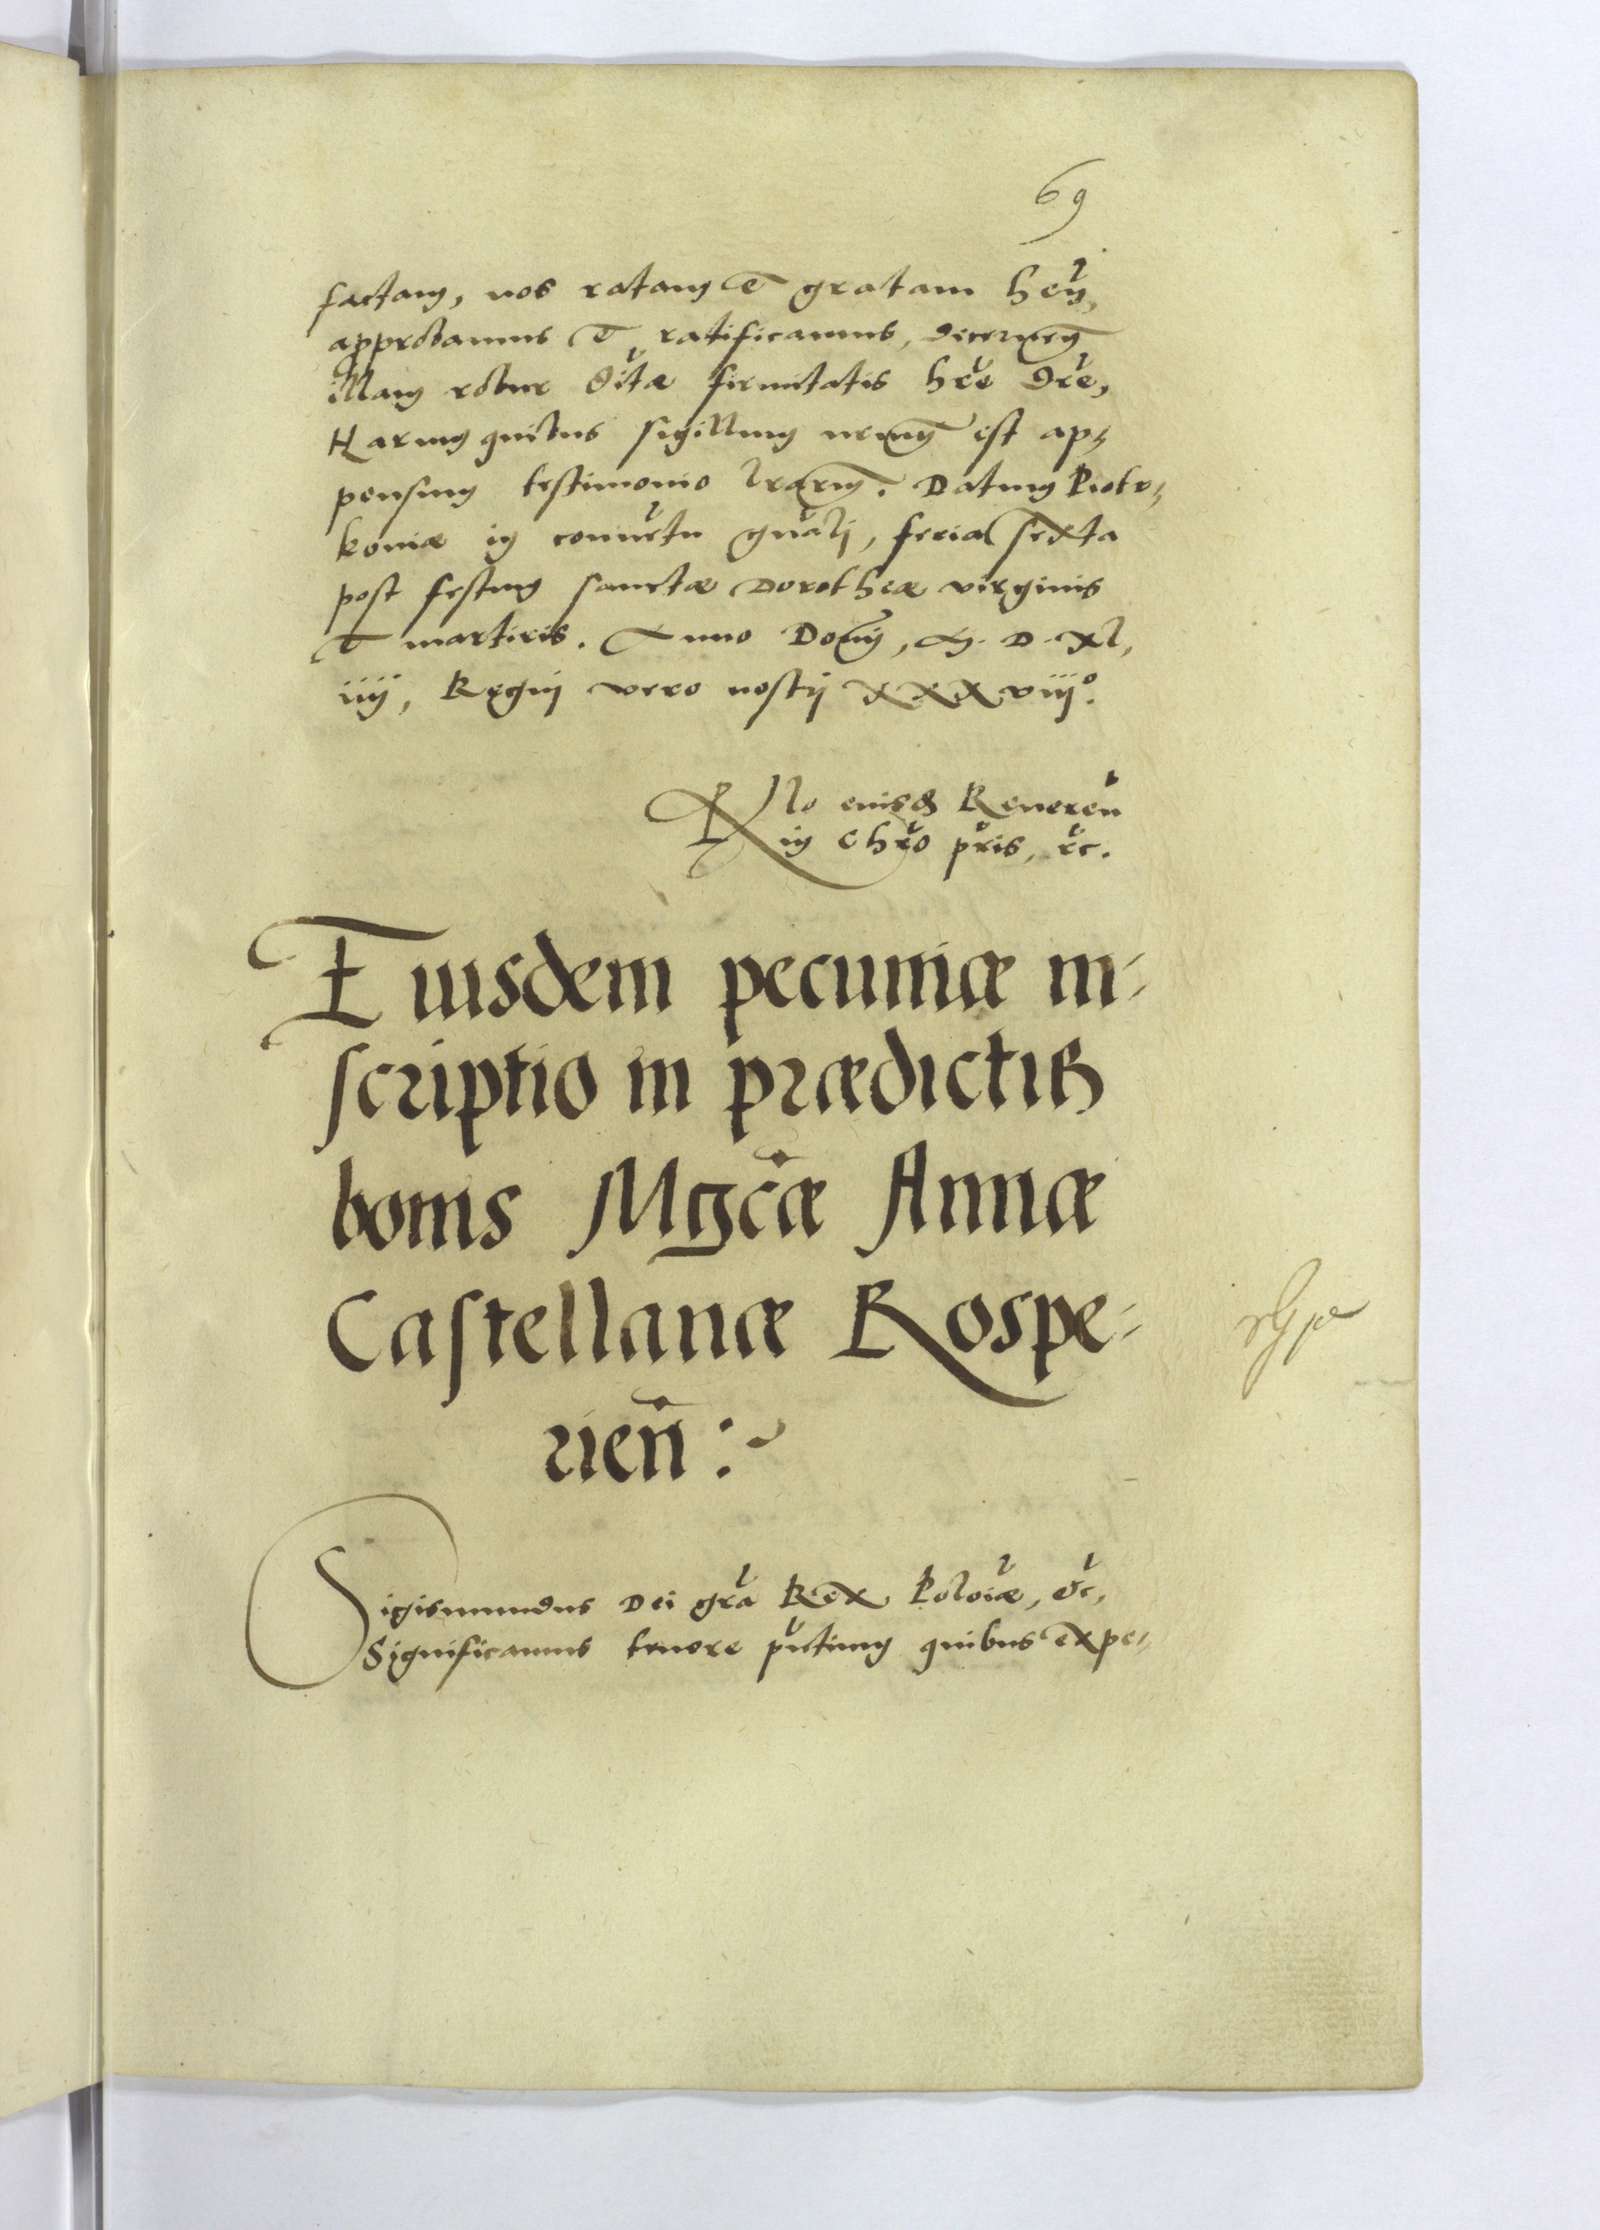 69
factam, nos ratam et gratam hen̄,
approbamus et ratificamus, decernen̄
illam robur dītæ firmitatis hr̄e dr̄e,
Harum quibus sigillum nr̄um est ap-
pensum testimonio lrarum. Datum Piotr-
koviæ in conuētu gn̄ali, feria sexta
post festum sanctæ Dorotheæ virginis
et martiris. Anno Domī, M. D. Xl,
iiij, Regni vero nostri XXXviijº.
Rl̄o eiusdē Reueren̄
in Chrō pr̄is, &c.
Eiusdem pecuniæ in-
scriptio in prædictis
bonis Mgc̄æ Annæ
Castellanæ Rospe-
rien̄ :~
Sigismundus Dei gr̄a Rex Poloīæ, &c,
Significamus tenore pn̄tium quibus expe-